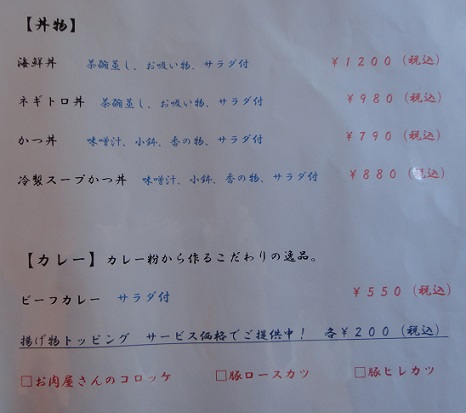 【丼物】
海鮮丼 茶碗蒸し、お吸い物、サラダ付 ￥１２００(税込)
ネギトロ丼 茶碗蒸し、お吸い物、サラダ付 ￥９８０(税込)
かつ丼 味噌汁、小鉢、香の物、サラダ付 ￥７９０(税込)
冷製スープかつ丼 味噌汁、小鉢、香の物、サラダ付 ￥８８０(税込)
【カレー】カレー粉から作るこだわりの逸品。
ビーフカレー サラダ付 ￥５５０(税込)
揚げ物トッピング サービス価格でご提供中！ 各￥２００(税込)
□お肉屋さんのコロッケ □豚ロースカツ □豚ヒレカツ